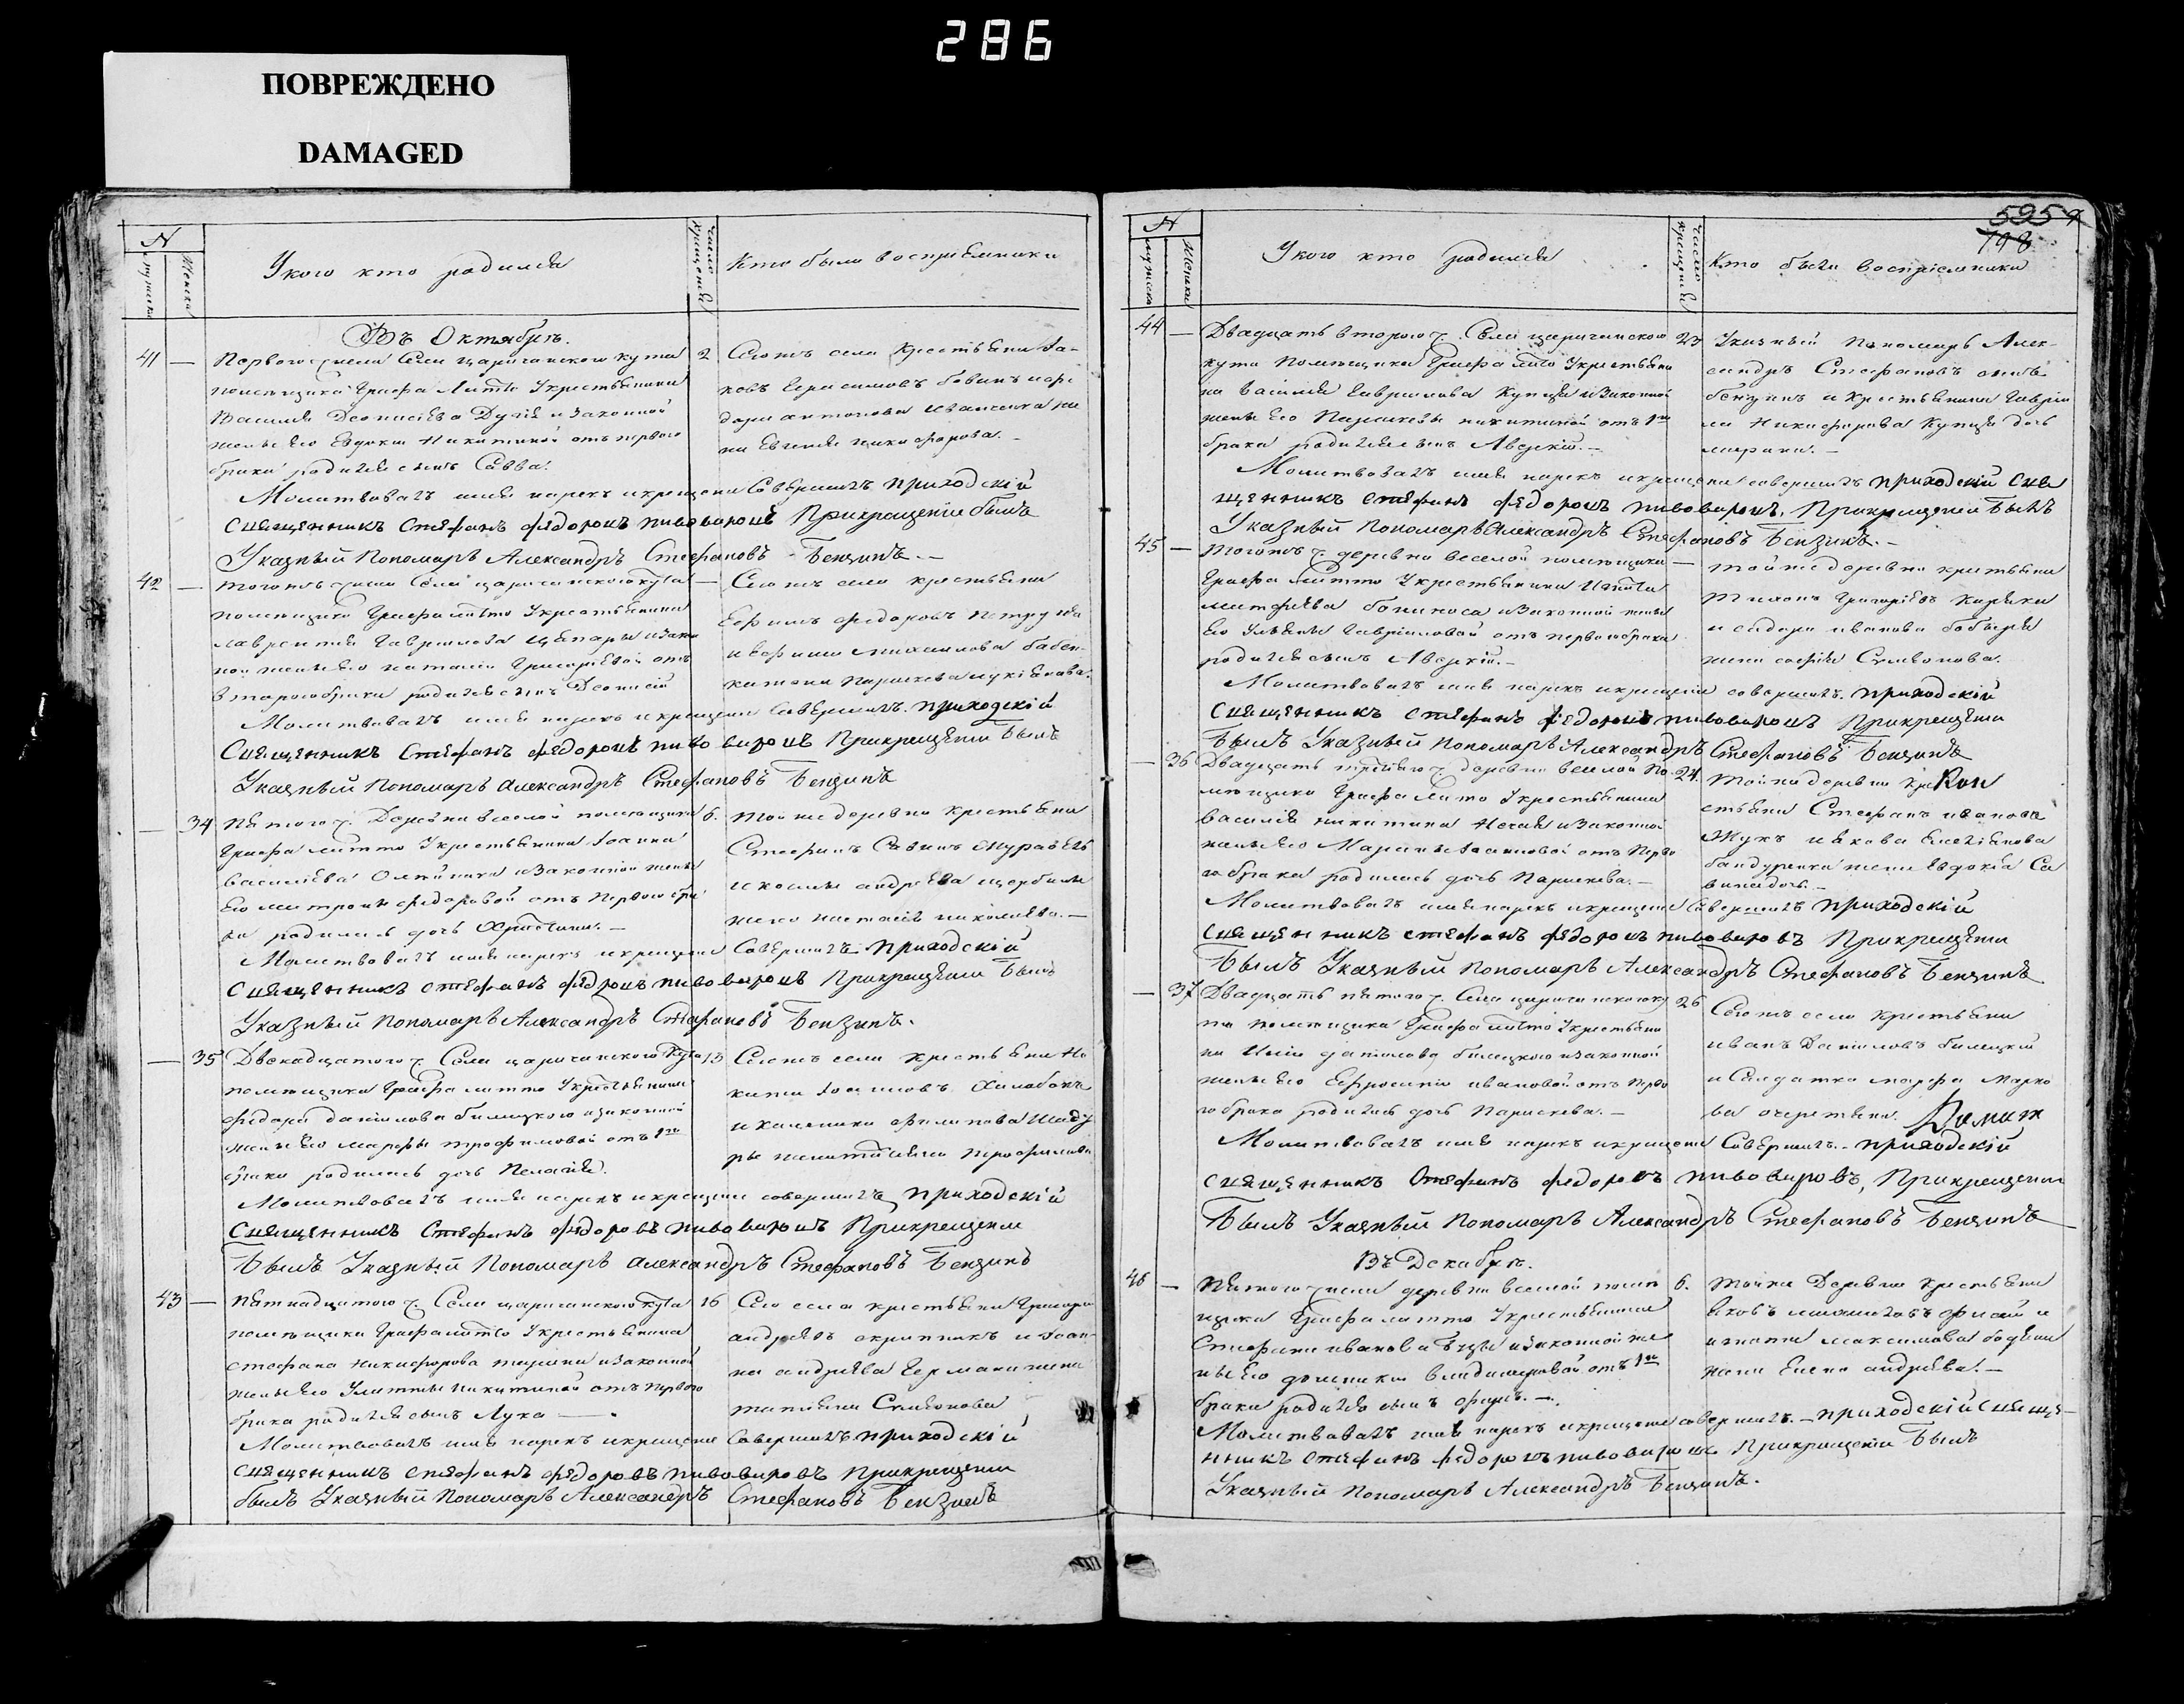 286
ПОВРЕЖДЕНО
DAMAGED
N
мужеска
женска
У кого кто родился
число крещенія
Кто были воспріемники
Въ Октябрѣ.
41 — Перваго числа Села царичанского кута
помещика Графа Литто Укрестьянина
Василія Деонисіева и законной
жены его Евдокіи Никитиной отъ перваго
брака родился сынъ Савва.
2 Сегожъ села крестьяне Іа-
ковъ Герасимовъ
антонова
на Евгенія никифорова. —
Молитвовалъ имя нарекъ и крещеніе Совершилъ приходскій
Священникъ Стефанъ Федоровъ пивоваровъ Прикрещеніи былъ
Указный Пономарь Александръ Стефановъ Бензинъ. —
42 — тогожъ числа Села царичанского кута
помещика Графа литто Укрестьянина
лаврентія Гавриилова и закон
ной жены его наталіи Григоріевой отъ
втораго брака родился сынъ Деонисій
— Сегожъ села крестьяне
Ефимъ Федоровъ Петруша
михаилова
жена Параскева
Молитвовалъ имя нарекъ и крещеніе Совершилъ приходскій
Священникъ Стефанъ Федоровъ пивоваровъ Прикрещеніи Былъ
Указный Пономарь Александръ Стефановъ Бензинъ
— 34 Пятого ч. Деревни веселой помещика
Графа литто Укрестьянина Іоанна
Василіева и законной жены
Его матроны федоровой отъ Перваго бра
ка родилась дочь Христина. —
6. Той же деревни крестьяне
Стефанъ Савинъ Журавель
и андрѣева
жена наталія николаева. —
Молитвовалъ имя нарекъ и крещеніе Совершилъ приходскій
Священникъ Стефанъ Федоровъ пивоваровъ Прикрещеніи Былъ
Указный Пономарь Александръ Стефановъ Бензинъ.
— 35 Двенадцатого ч. Села царичанского кута
помещика Графа литто Укрестьянина
федора даніилова билецкого и законной
жены его марфы трофимовой отъ 1го
брака родилась дочь Пелагія.
13 Сегожъ села крестьяне Ни
кита Іоанновъ
и филипова
жена трофимова
Молитвовалъ имя нарекъ и крещеніе совершилъ приходскій
Священникъ Стефанъ Федоровъ пивоваровъ Прикрещеніи
Былъ Указный Пономарь Александръ Стефановъ Бензинъ
43 — Пятнадцатого ч. Села царичанского кута
помещика Графа литто Укрестьянина
Стефана Никифорова и законной
жены его Улитты никитиной отъ Перваго
брака родился сынъ Лука —.
16 Сего села крестьяне Григорій
андрѣевъ скрипникъ и Іоан-
на андрѣева жена
татіяна Симеонова
Молитвовалъ имя нарекъ и крещеніе Совершилъ приходскій
Священникъ Стефанъ Федоровъ пивоваровъ Прикрещеніи
былъ Указный Пономарь Александръ Стефановъ Бензинъ
595
198
N
мужеска
женска
У кого кто родился
число крещенія
Кто были воспріемники
44 — Двадцать второго ч. Села царичанского
кута Помещика Графа литто Укрестьяни
на Василія Гавриилова Купцея и законной
жены его Параскевы никитиной отъ 1го
брака родился сынъ Аверкій. —
23 Указный пономарь Алек-
сандръ Стефановъ сынъ
бензинъ и крестьянина Гаврии
ла Никифорова Купцея дочь
марина. —
Молитвовалъ имя нарекъ и крещеніе совершилъ приходскій Свя
щенникъ Стефанъ Федоровъ пивоваровъ. Прикрещеніи Былъ
Указный Пономарь Александръ Стефановъ Бензинъ. —
45 — тогожъ ч. деревни веселой помещика
Графа Литто Укрестьянина
матфѣева и законной жены
Его Ульяны Гавриловой отъ перваго брака
родился сынъ Аверкій. —
— той же деревни крестьяне
Григоріевъ
и сидора иванова
жена софія Симеонова.
Молитвовалъ имя нарекъ и крещеніе совершилъ приходскій
Священникъ Стефанъ Федоровъ пивоваровъ Прикрещеніи
Былъ Указный Пономарь Александръ Стефановъ Бензинъ
— 36 Двадцать третяго ч. деревни веселой По-
мещика Графа Литто Укрестьянина
Василія никитина и законной
жены его Марины Іоанновой отъ Перва
го брака родилась дочь Параскева. —
24. той же деревни кре
стьяне Стефанъ иванова
Жукъ и якова
бандуренка жена Евдокія Са
вина дочь. —
Молитвовалъ имя нарекъ и крещеніе Совершилъ приходскій
Священникъ Стефанъ Федоровъ пивоваровъ Прикрещеніи
Былъ Указный Пономарь Александръ Стефановъ Бензинъ
— 37 Двадцать пятого ч. Села царичанского ку
та помещика Графа литто Укрестьяни
на даніилова билецкого и законной
жены его Ефросиніи ивановой отъ Перва
го брака родилась дочь Параскева. —
26 Сегожъ села крестьяне
иванъ Даніиловъ билецкій
и Салдатка марфа Марко
ва
Молитвовалъ имя нарекъ и крещеніе Совершилъ. — приходскій
Священникъ Стефанъ Федоровъ пивоваровъ, Прикрещеніи
Былъ Указный Пономарь Александръ Стефановъ Бензинъ
Въ Декабрѣ.
46 — Пятого числа деревни веселой поме
щика Графа литто Укрестьянина
Стефана иванова и законной же
ны его домникіи владимировой отъ 1го
брака родился сынъ —.
6. той же Деревни крестьяне
максимова
жена Елена андрѣева. —
Молитвовалъ имя нарекъ и крещеніе совершилъ. — приходскій Свяще-
нникъ Стефанъ Федоровъ пивоваровъ Прикрещеніи Былъ
Указный Пономарь Александръ Бензинъ.